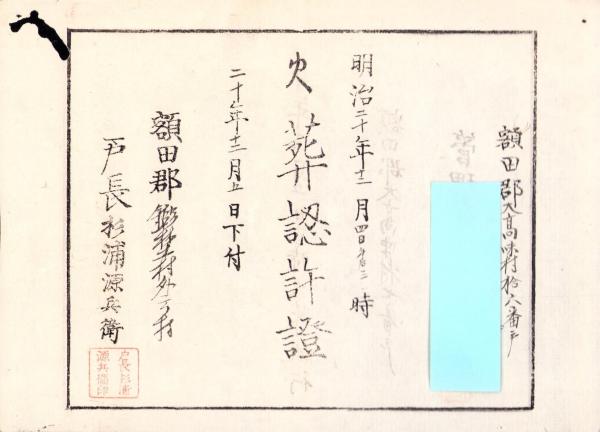 額田郡大高味村拾八番戸
明治二十年十二月四日午前三時
火葬認許證
二十年十二月五日下付
額田郡
戸長杉浦源兵衛
戸長杉浦
源兵衛印